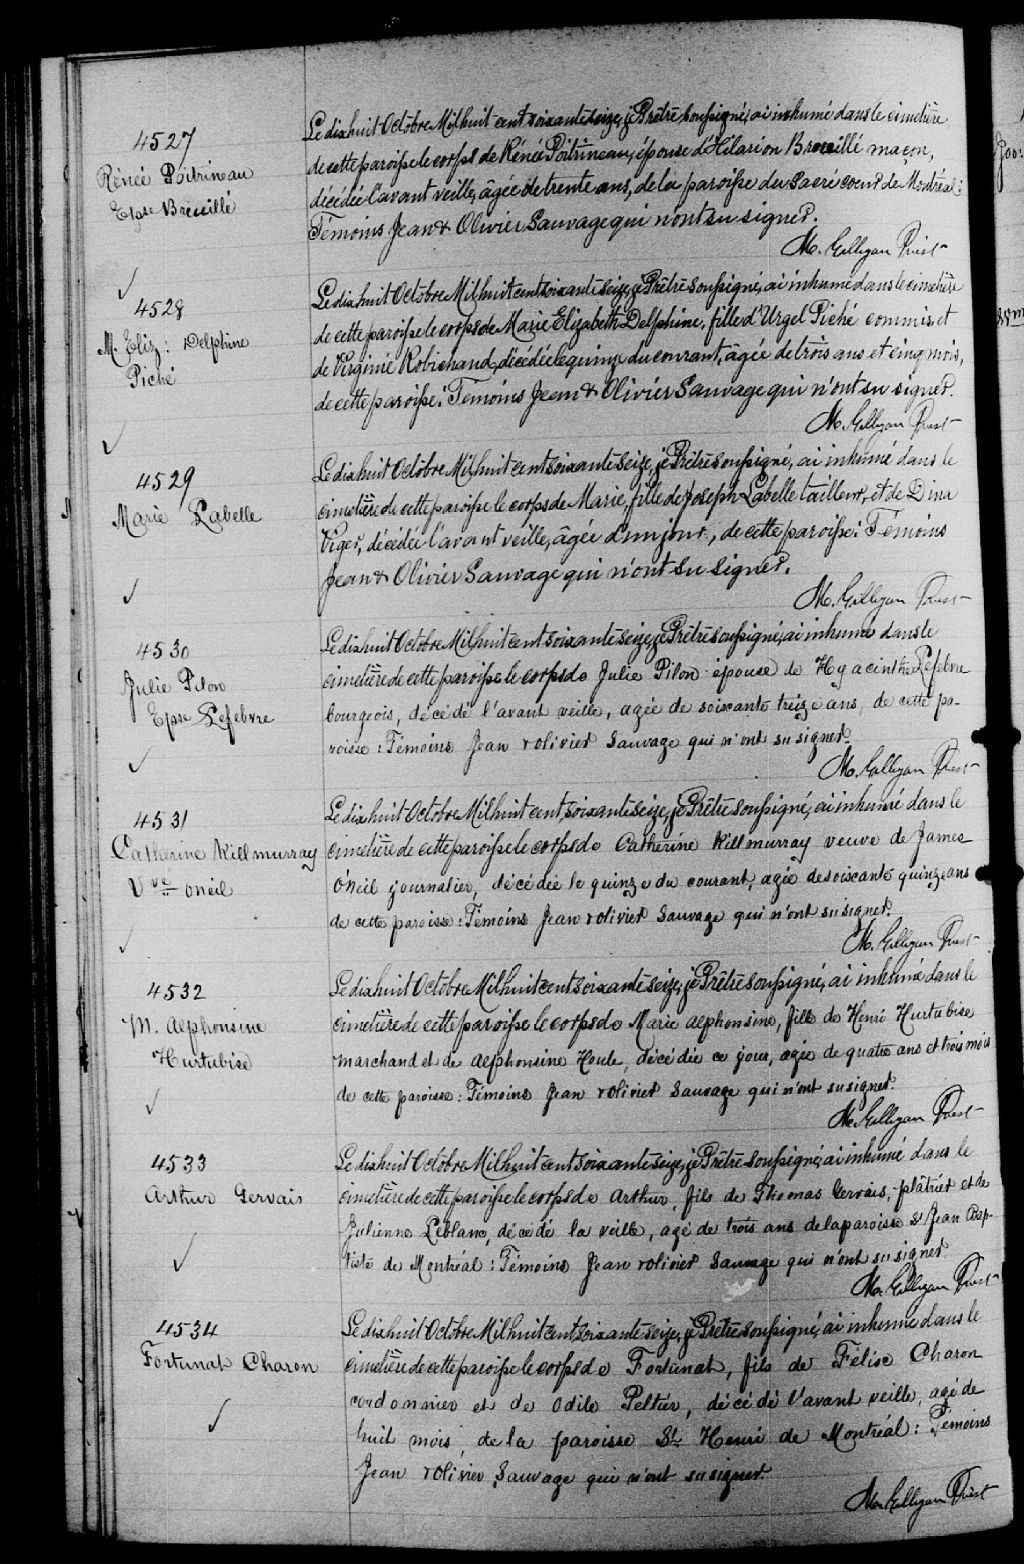 4527
Rénée Poitrineau
Epse Breuillé
Le dixhuit Octobre Mil huit cent soixante seize, je Prêtre soussigné, ai inhumé dans le cimetière
de cette paroisse le corps de Rénée Poitrineau, épouse d'Hilarion Breuillé maçon,
décédée l'avant veille, âgée de trente ans, de la paroisse du Sacré coeur de Montréal:
Témoins Jean & Olivier Sauvage qui n'ont su signer.
M. Gilligan Priest
4528
M. Eliz: Delphine
Piché
Le dix huit Octobre Mil huit cent soixante seize, je Prêtre soussigné, ai inhumé dans le cimetière
de cette paroisse le corps de Marie Elizabeth Delphine, fille d'Urgel Piché commis, et
de Virginie Robichaud, décédée le quinze du courant, âgée de trois ans et cinq mois,
de cette paroisse: Temoins Jean & Olivier Sauvage qui n'ont su signer.
M. Gilligan Priest
4529
Marie Labelle
Le dix huit Octobre Mil huit cent soixante seize, je Prêtre soussigné, ai inhumé dans le
cimetière de cette paroisse le corps de Marie, fille de Joseph Labelle tailleur, et de Dina
Viger, décédée l'avant veille, âgée d'un jour, de cette paroisse: Témoins
Jean & Olivier Sauvage qui n'ont su signer.
M. Gilligan Priest
4530
Julie Pilon
Epse Lefebvre
Le dix huit Octobre Mil huit cent soixante seize, je Prêtre soussigné, ai inhumé dans le
cimetière de cette paroisse le corps de Julie Pilon épouse de Hyacinthe Lefebvre
bourgeois, décédé l'avant veille, agée de soixante treize ans, de cette pa-
roisse: Témoins Jean & olivier Sauvage qui n'ont su signer.
M. Gilligan Priest
4531
Catherine Killmurray
Vve oneil
Le dix huit Octobre Mil huit cent soixante seize, je Prêtre soussigné, ai inhumé dans le
cimetière de cette paroisse le corps de Catherine Killmurray veuve de James
O'neil journalier, décédée le quinze du courant, agée de soixante quinze ans
de cette paroisse: Témoins Jean & olivier Sauvage qui n'ont su signer.
M. Gilligan Priest
4532
M. Alphonsine
Hurtubise
Le dix huit Octobre Mil huit cent soixante seize, je Prêtre soussigné, ai inhumé dans le
cimetière de cette paroisse le corps de Marie alphonsine, fille de Henri Hurtubise
marchand et de alphonsine Houle, décédée ce jour, agée de quatre ans et trois mois
de cette paroisse: Témoins Jean & olivier Sauvage qui n'ont su signer.
M. Gilligan Priest
4533
Arthur Gervais
Le dix huit Octobre Mil huit cent soixante seize, je Prêtre soussigné, ai inhumé dans le
cimetière de cette paroisse le corps de Arthur, fils de Thomas Gervais, plâtrier et de
Julienne Leblanc, décédé la veille, agé de trois ans de la paroisse St Jean Bap-
tiste de Montréal: Témoins Jean & olivier Sauvage qui n'ont su signer
M. Gilligan Priest
4534
Fortunat Charon
Le dix huit Octobre Mil huit cent soixante seize, je Prêtre soussigné, ai inhumé dans le
cimetière de cette paroisse le corps de Fortunat, fils de Félise Charon
cordonnier et de Odile Peltier, décédé l'avant veille, agé de
huit mois, de la paroisse St Henri de Montréal: Témoins
Jean & olivier Sauvage qui n'ont su signer.
M. Gilligan Priest